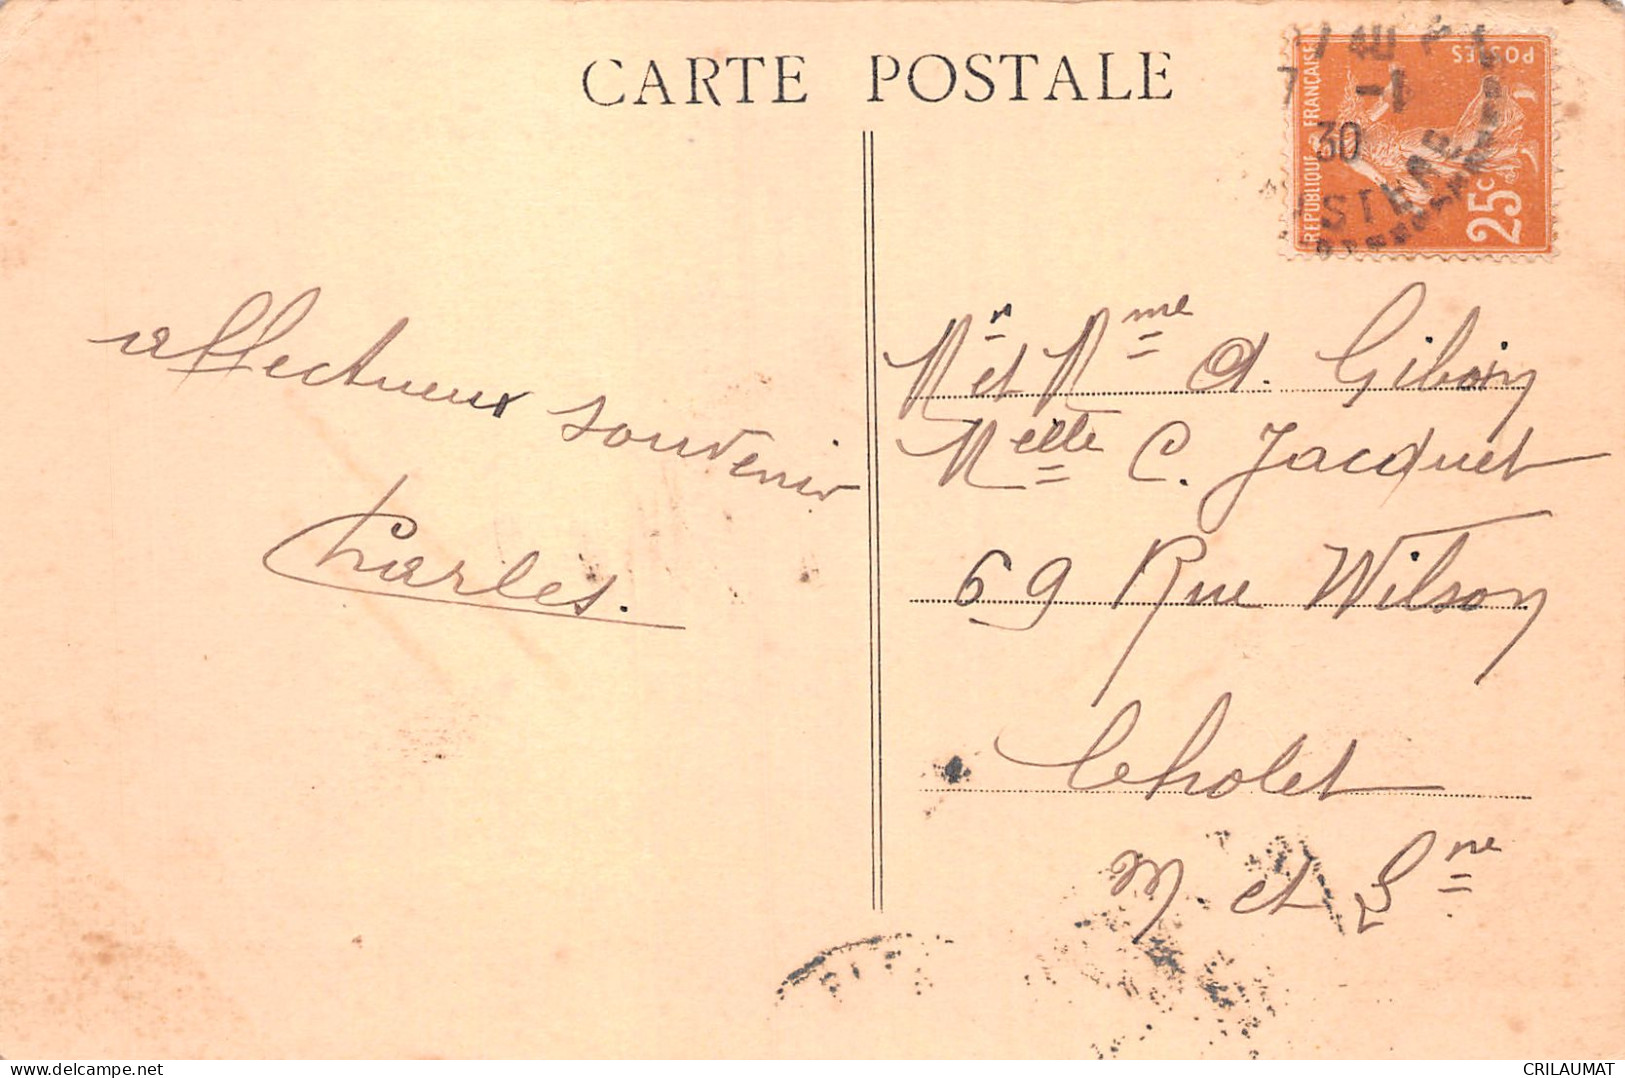 CARTE POSTALE
REPUBLIQUE FRANÇAISE
POSTES
25c
7 -1
30
affectueux souvenir
Charles.
Mr et Mme A.
Melle C. Jacquet
69 Rue Wilson
Cholet
M et Lne
delcampe.net
CRILAUMAT